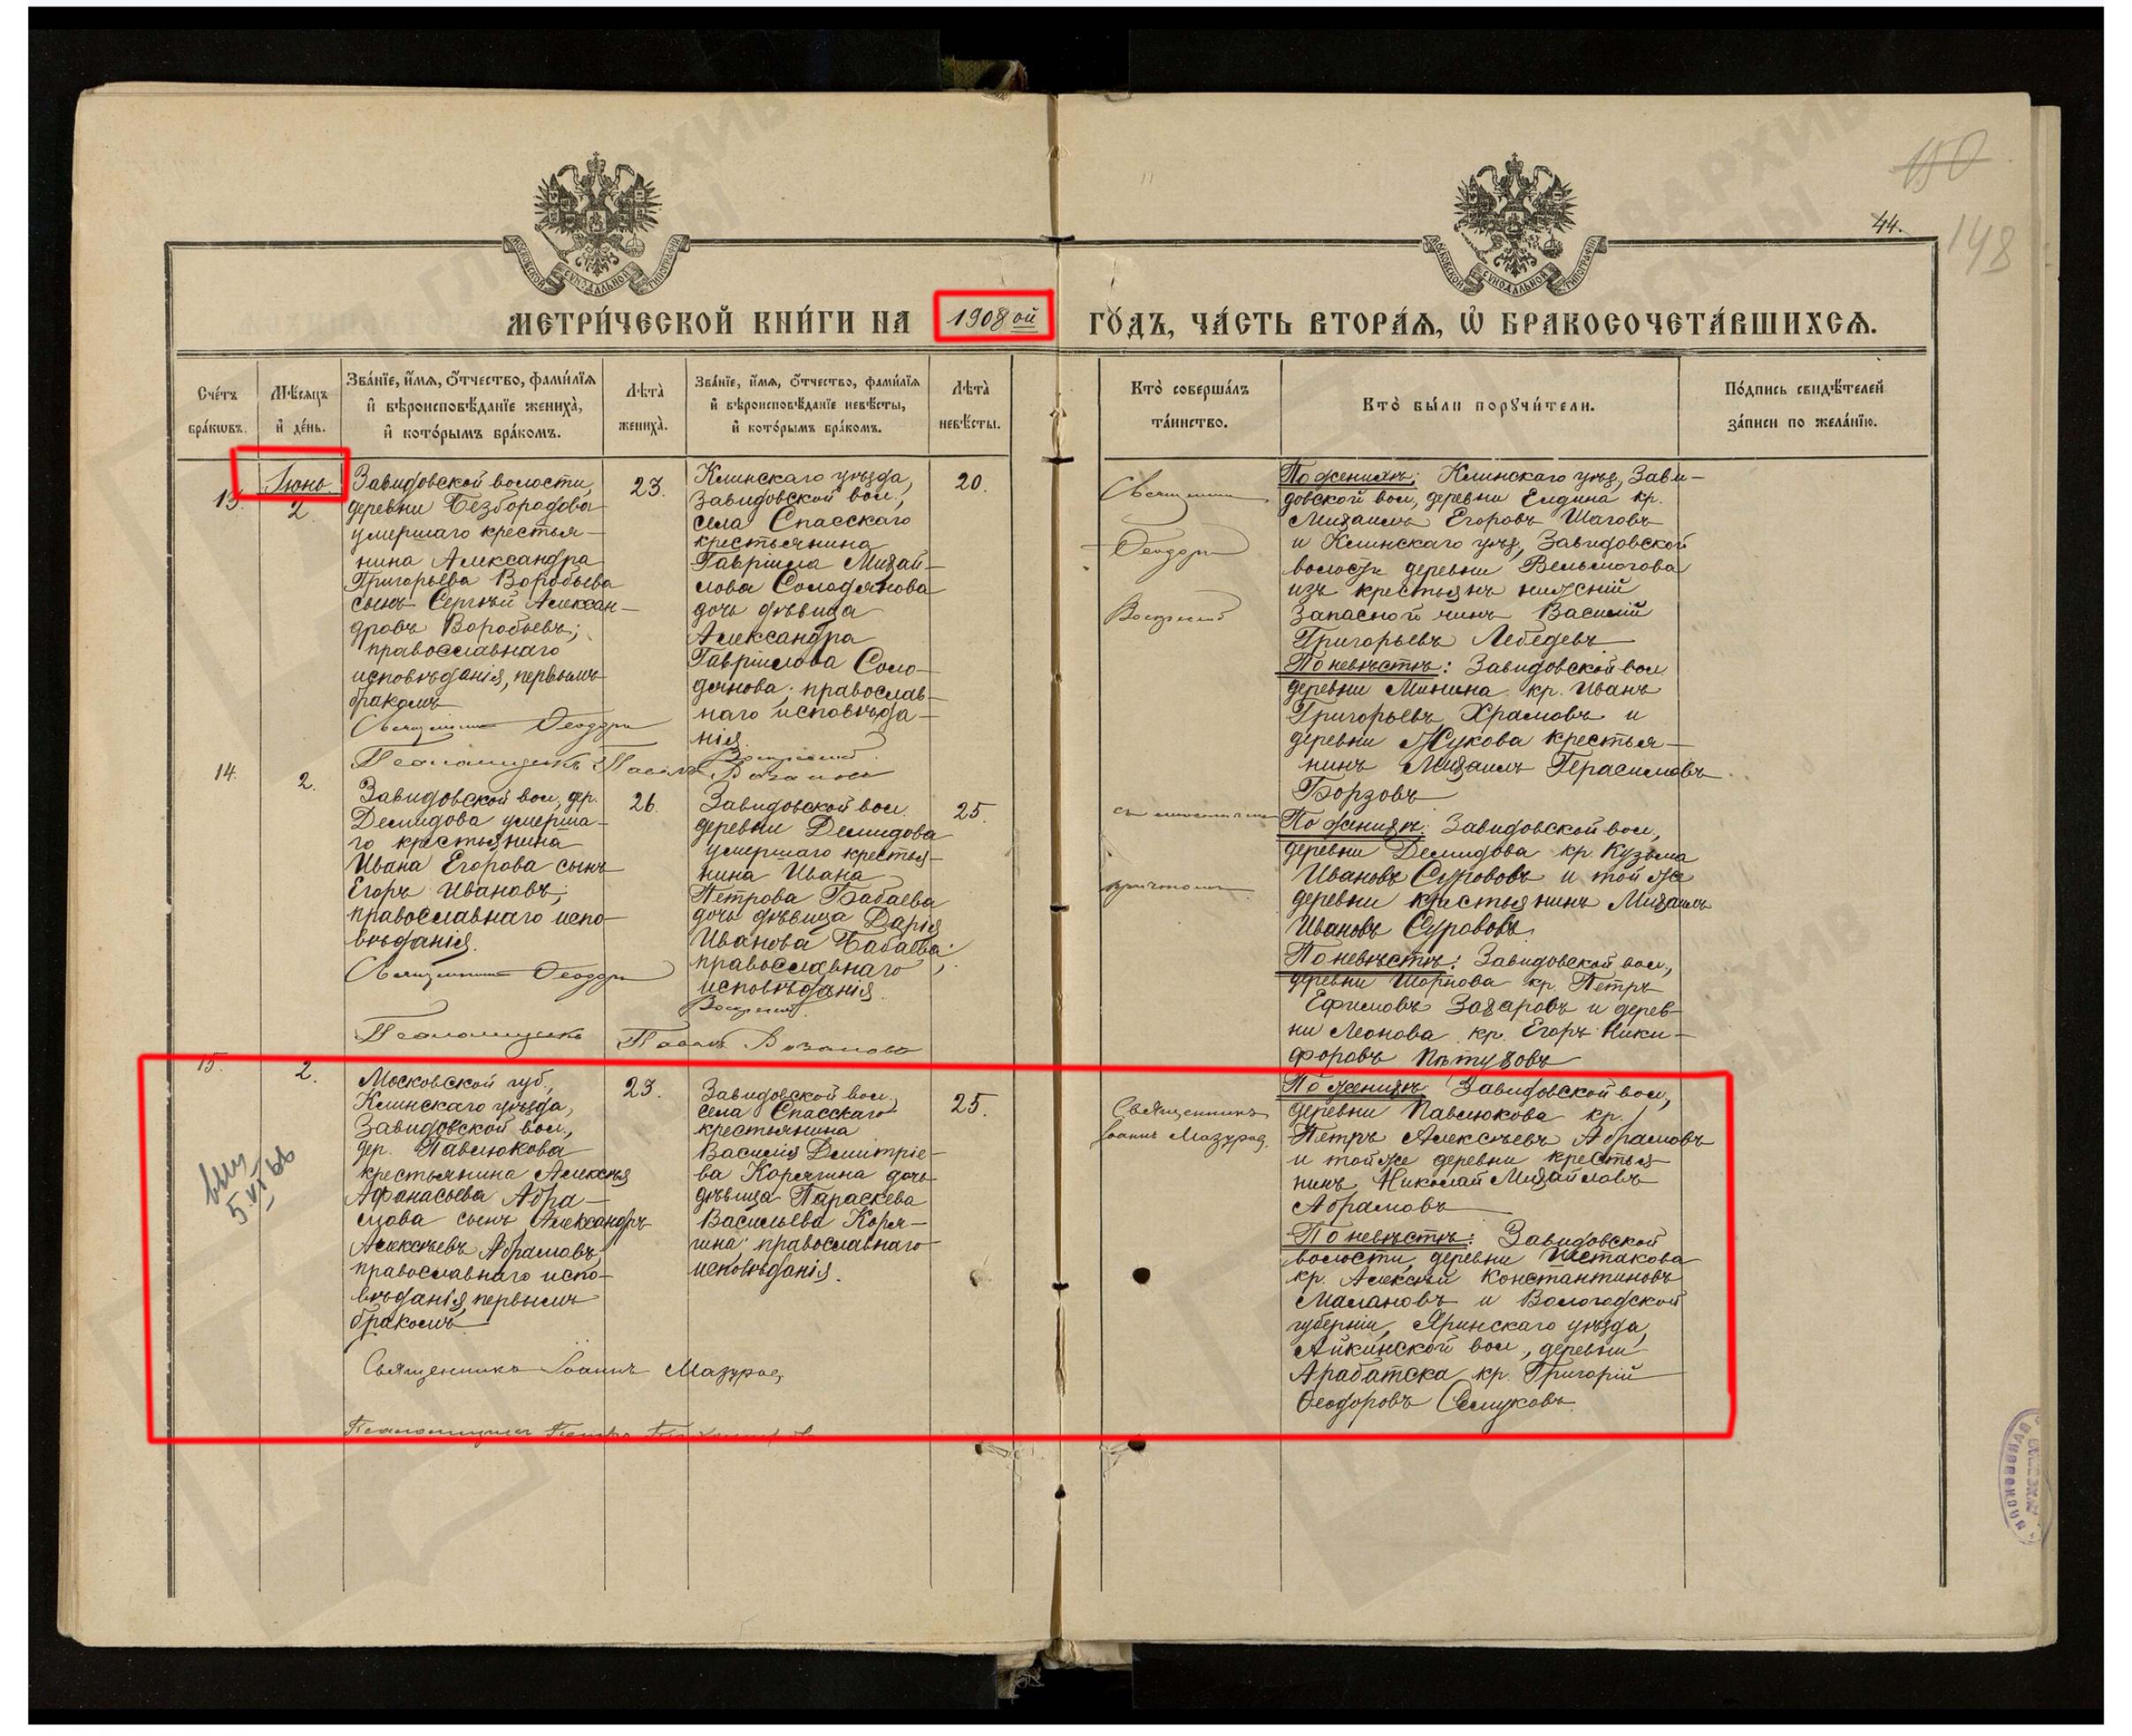 150
44.
148
МОСКОВСКОЙ СѴНОДАЛЬНОЙ ТИПОГРАФІИ
МОСКОВСКОЙ СѴНОДАЛЬНОЙ ТИПОГРАФІИ
МЕТРИ́ЧЕСКОЙ КНИ́ГИ НА 1908 ой ГО́ДЪ, ЧА́СТЬ ВТОРА́Ѧ, Ѡ҆ БРАКОСОЧЕТА́ВШИХСѦ.
Сче́тъ
бра́кѡвъ.
Мѣ́сѧцъ
и҆ де́нь.
Зва́нїе, и҆́мѧ, ѻ҆́тчество, фами́лїѧ
и҆ вѣроисповѣ́данїе жениха̀,
и҆ кото́рымъ бра́комъ.
Лѣта̀
жениха̀.
Зва́нїе, и҆́мѧ, ѻ҆́тчество, фами́лїѧ
и҆ вѣроисповѣ́данїе невѣ́сты,
и҆ кото́рымъ бра́комъ.
Лѣта̀
невѣ́сты.
Кто̀ соверша́лъ
та́инство.
Кто̀ бы́ли порꙋчи́тели.
По́дпись свидѣ́телей
за́писи по жела́нїю.
13.
Іюнь.
2.
Завидовской волости,
деревни Безбородова
умершаго крестья-
нина Александра
Григорьева Воробьева
сынъ Сергѣй Алексан-
дровъ Воробьевъ;
православнаго
исповѣданія, первымъ
бракомъ
23.
Клинскаго уѣзда,
Завидовской вол.,
села Спасскаго
крестьянина
Гавріила Михай-
лова Солодянова
дочь дѣвица
Александра
Гавріилова Соло-
дянова; православ-
наго исповѣда-
нія.
20.
Священникъ Ѳеодоръ
Воскресенскій
Псаломщикъ Павелъ
Священникъ
Ѳеодоръ
По женихѣ: Клинскаго уѣз., Зави-
довской вол., деревни Елдина кр.
Михаилъ Егоровъ Шаговъ
и Клинскаго уѣз., Завидовской
волости деревни Вельмогова
изъ крестьянъ нижсній
запасной чинъ Василій
Григорьевъ Лебедевъ
По невѣстѣ: Завидовской вол.
деревни Минина кр. Иванъ
Григорьевъ Храмовъ и
деревни Жукова крестья-
нинъ Михаилъ Герасимовъ
Борзовъ
14.
2.
Завидовской вол., дер.
Демидова умерша-
го крестьянина
Ивана Егорова сынъ
Егоръ Ивановъ;
православнаго испо-
вѣданія.
26.
Завидовской вол.
деревни Демидова
умершаго крестья-
нина Ивана
Петрова Бабаева
дочь дѣвица Дарія
Иванова Бабаева;
православнаго
исповѣданія.
25.
Священникъ Ѳеодоръ
Псаломщикъ Павелъ
причтомъ
По женихѣ: Завидовской вол.,
деревни Демидова кр. Кузьма
Ивановъ Сурововъ и той же
деревни крестьянинъ Михаилъ
Ивановъ Сурововъ.
По невѣстѣ: Завидовской вол.,
деревни Шорнова кр. Петръ
Ефимовъ Захаровъ и дерев-
ни Леонова кр. Егоръ Ники-
форовъ Пѣтуховъ
15.
2.
5.VI 66
Московской губ.,
Клинскаго уѣзда,
Завидовской вол.,
дер. Павлюкова
крестьянина Алексѣя
Афанасьева Абра-
мова сынъ Александръ
Алексѣевъ Абрамовъ,
православнаго испо-
вѣданія, первымъ
бракомъ
23.
Завидовской вол.,
села Спасскаго
крестьянина
Василія Димитріе-
ва Корягина дочь
дѣвица Параскева
Васильева Коря-
гина; православнаго
исповѣданія.
25.
Священникъ Іоаннъ Мазуров
Псаломщикъ
Священникъ
Іоаннъ Мазуров
По женихѣ: Завидовской вол.,
деревни Павлюкова кр.
Петръ Алексѣевъ Абрамовъ
и той же деревни крестья-
нинъ Николай Михайловъ
Абрамовъ
По невѣстѣ: Завидовской
волости, деревни Шестакова
кр. Алексѣй Константиновъ
Малановъ и Вологодской
губерніи, Яринскаго уѣзда,
Айкинской вол., деревни
Арабатска кр. Григорій
Ѳеодоровъ Семуковъ.